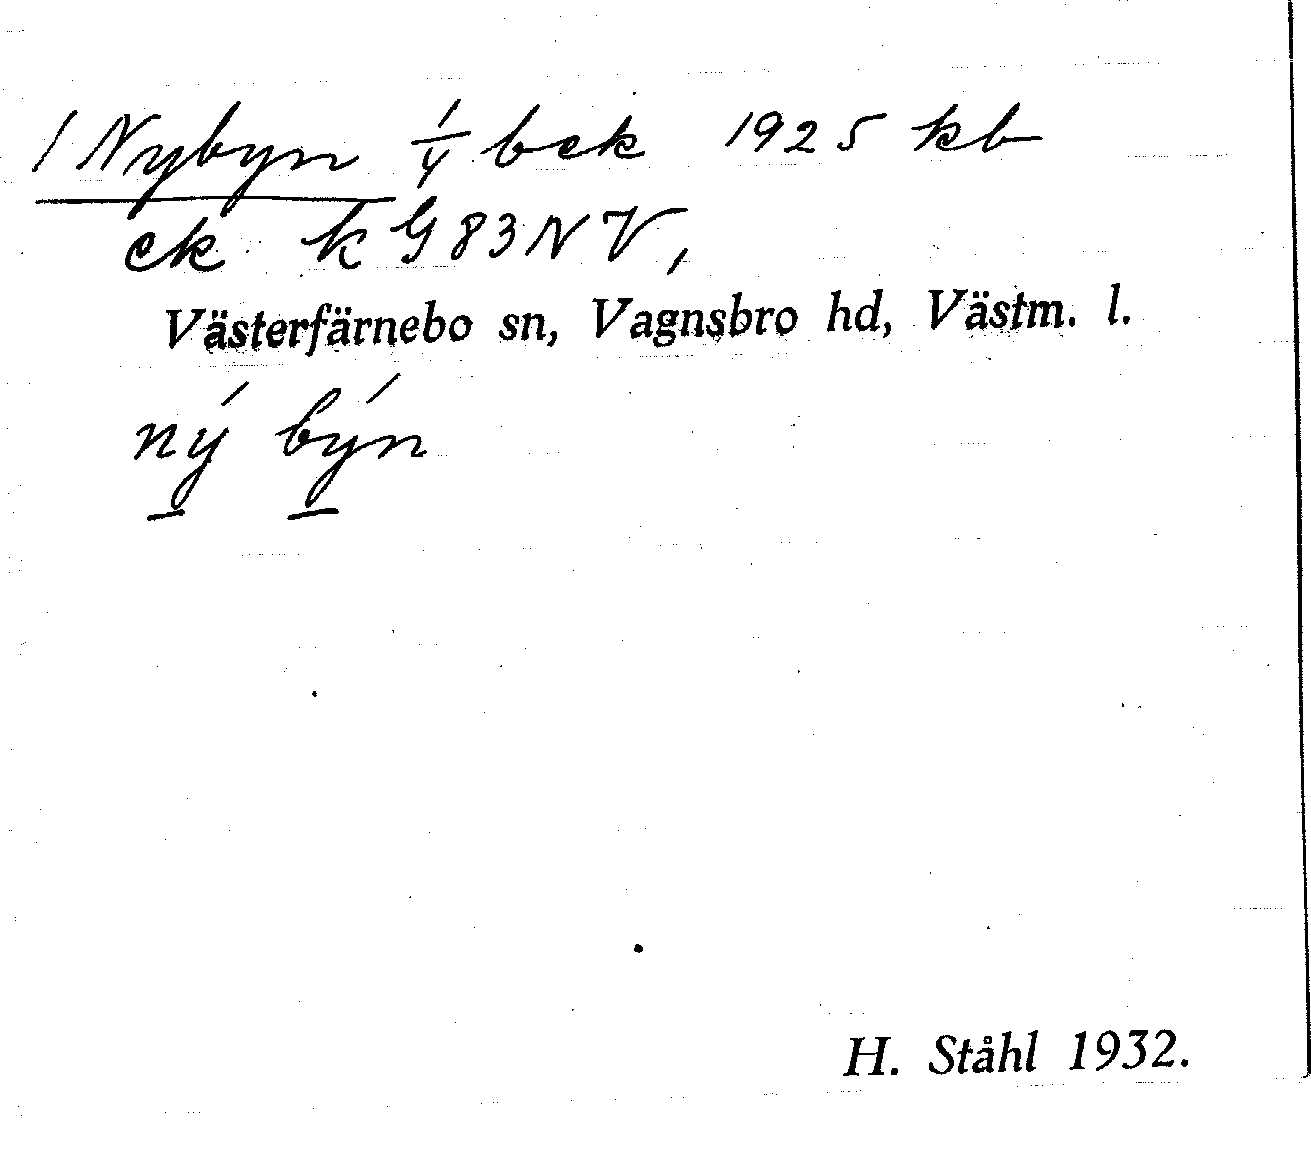 / Nybyn 1/4 bek 1925 kb
ek k G83NV,
Västerfärnebo sn, Vagnsbro hd, Västm. l.
ný býn
H. Ståhl 1932.